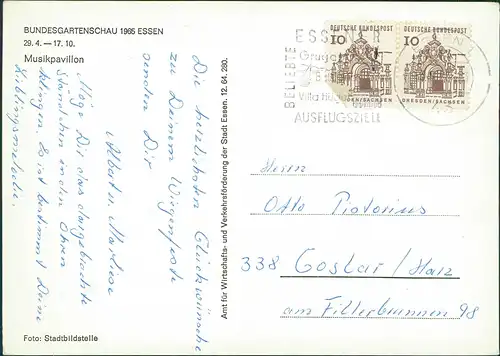 BUNDESGARTENSCHAU 1965 ESSEN
29.4. — 17.10.
Musikpavillon
Die herzlichsten Glückwünsche
zu Deinem Wiegenfeste
senden Dir
Albert u. Marlise
Möge Dir das dargebrachte
Ständchen in den Ohren
klingen. Es ist bestimmt Deine
Lieblingsmelodie.
Foto: Stadtbildstelle
Amt für Wirtschafts- und Verkehrsförderung der Stadt Essen. 12. 64. 280.
DEUTSCHE BUNDESPOST
10
DRESDEN/SACHSEN
DEUTSCHE BUNDESPOST
10
DRESDEN/SACHSEN
ESSENER
BELIEBTE
Gruga
Villa Hügel
AUSFLUGSZIELE
Herrn
Otto Pistorius
338 Goslar/Harz
am Fillerbrunnen 98